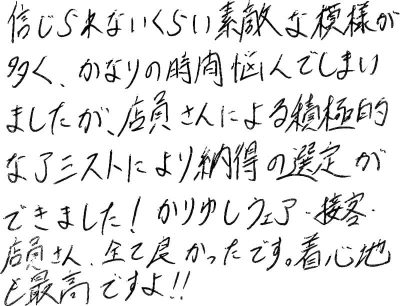 信じられないくらい素敵な模様が
多く、かなりの時間悩んでしまい
ましたが、店員さんによる積極的
なアシストにより納得の選定が
できました！かりゆしウェア・接客・
店員さん、全て良かったです。着心地
も最高ですよ!!